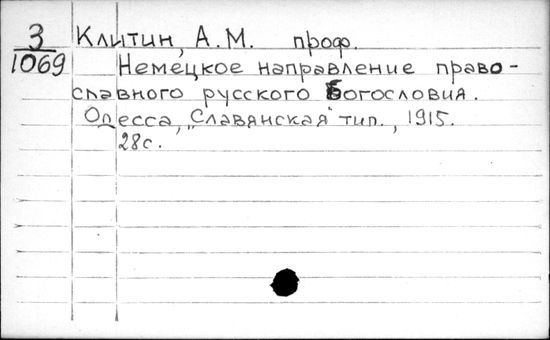 3
1069
Клитин, А.М. проф.
Немецкое направление право-
славного русского Богословия.
Одесса, "Славянская" тип., 1915.
28с.